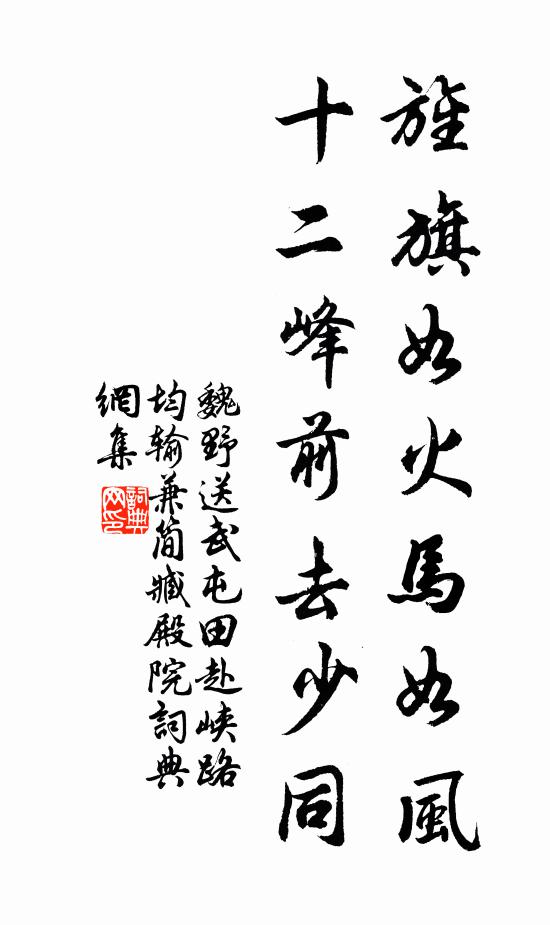 旌旗如火馬如風
十二峰前去少同
魏野送武屯田赴峽路
均輸兼簡臧殿院詞典
網集
詞典網印